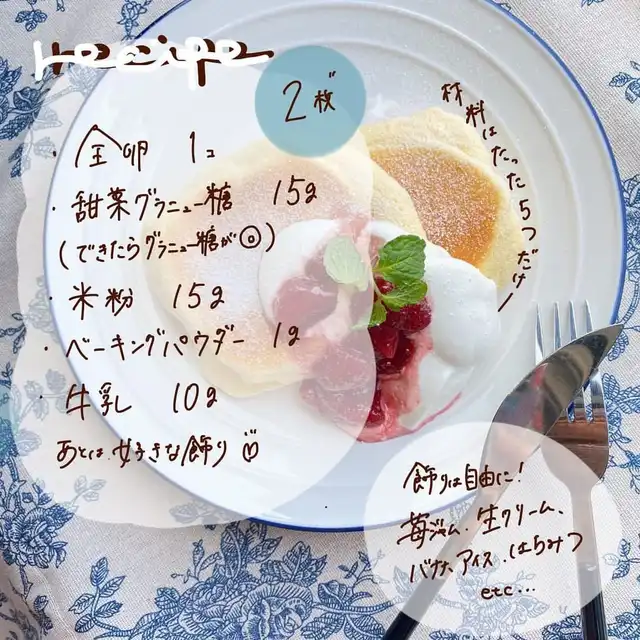 recipe
2枚
・全卵 1コ
・甜菜グラニュー糖 15g
(できたらグラニュー糖が◎)
・米粉 15g
・ベーキングパウダー 1g
・牛乳 10g
あとは、好きな飾り♡
材料はたった5つだけー
飾りは自由に!
苺ジャム、生クリーム、
バナナ、アイス、はちみつ
etc...